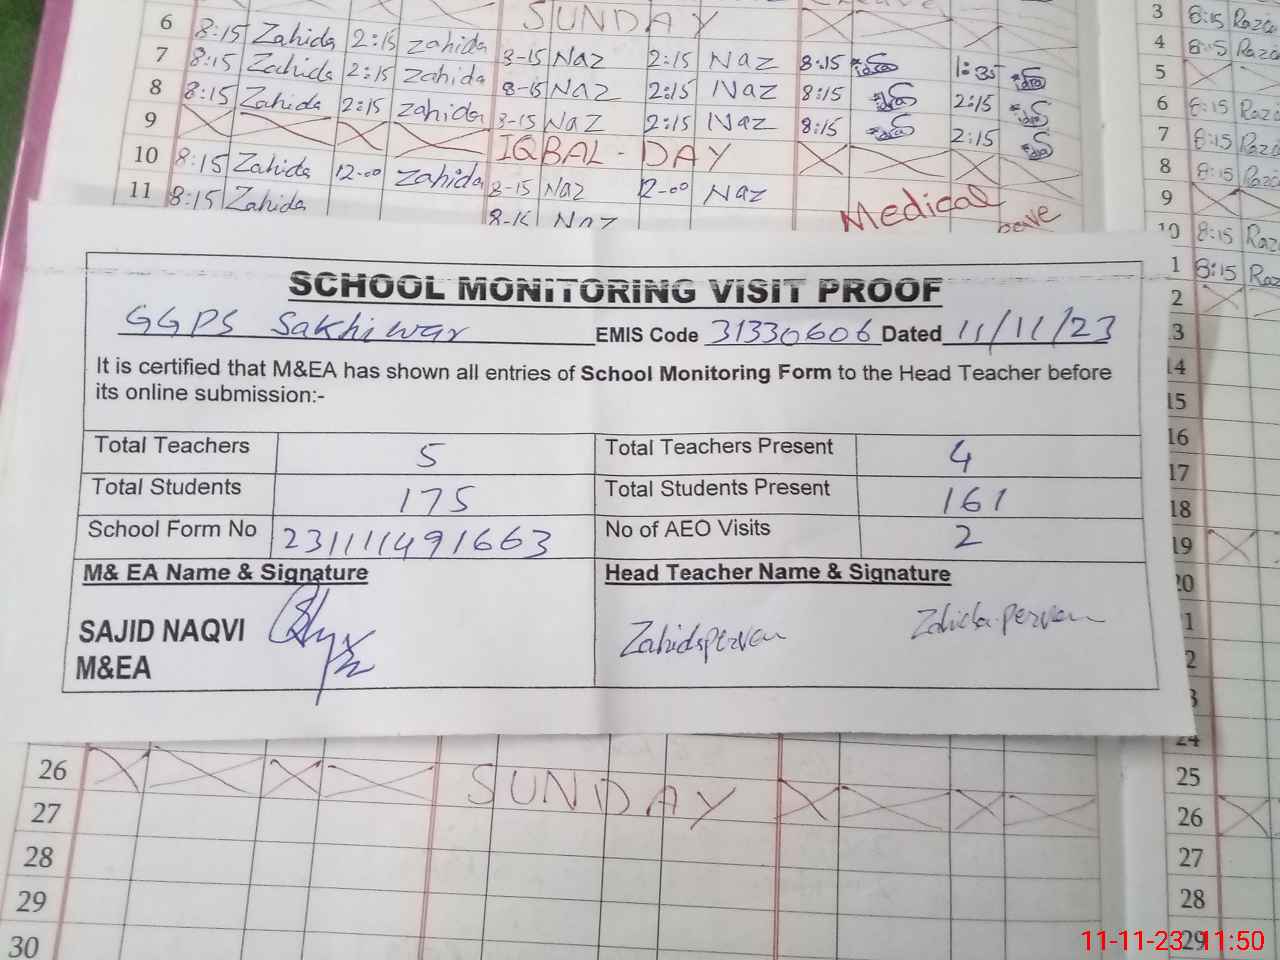 SUNDAY
6 8:15 Zahida 2:15 Zahida 8-15 Naz 2:15 Naz 8:15 1:35
7 8:15 Zahida 2:15 Zahida 8-15 Naz 2:15 Naz 8:15 2:15
8 8:15 Zahida 2:15 Zahida 8-15 Naz 2:15 Naz 8:15 2:15
9 IQBAL-DAY
10 8:15 Zahida 12-00 Zahida 8-15 Naz 12-00 Naz Medical
11 8:15 Zahida Naz
SCHOOL MONITORING VISIT PROOF
GGPS Sakhiwar EMIS Code 31330606 Dated 11/11/23
It is certified that M&EA has shown all entries of School Monitoring Form to the Head Teacher before
its online submission:-
Total Teachers 5 Total Teachers Present 4
Total Students 175 Total Students Present 161
School Form No 231111491663 No of AEO Visits 2
M& EA Name & Signature Head Teacher Name & Signature
SAJID NAQVI
M&EA
Zahida perven Zahida perven
26 SUNDAY
27
28
29
30
3 8:15 Raza
4 8:15 Raza
5
6 8:15 Raza
7 8:15 Raza
8 8:15 Raza
9
10 8:15 Raza
1 8:15 Raza
2
3
14
15
16
17
18
19
20
1
2
3
24
25
26
27
28
29
11-11-23 11:50